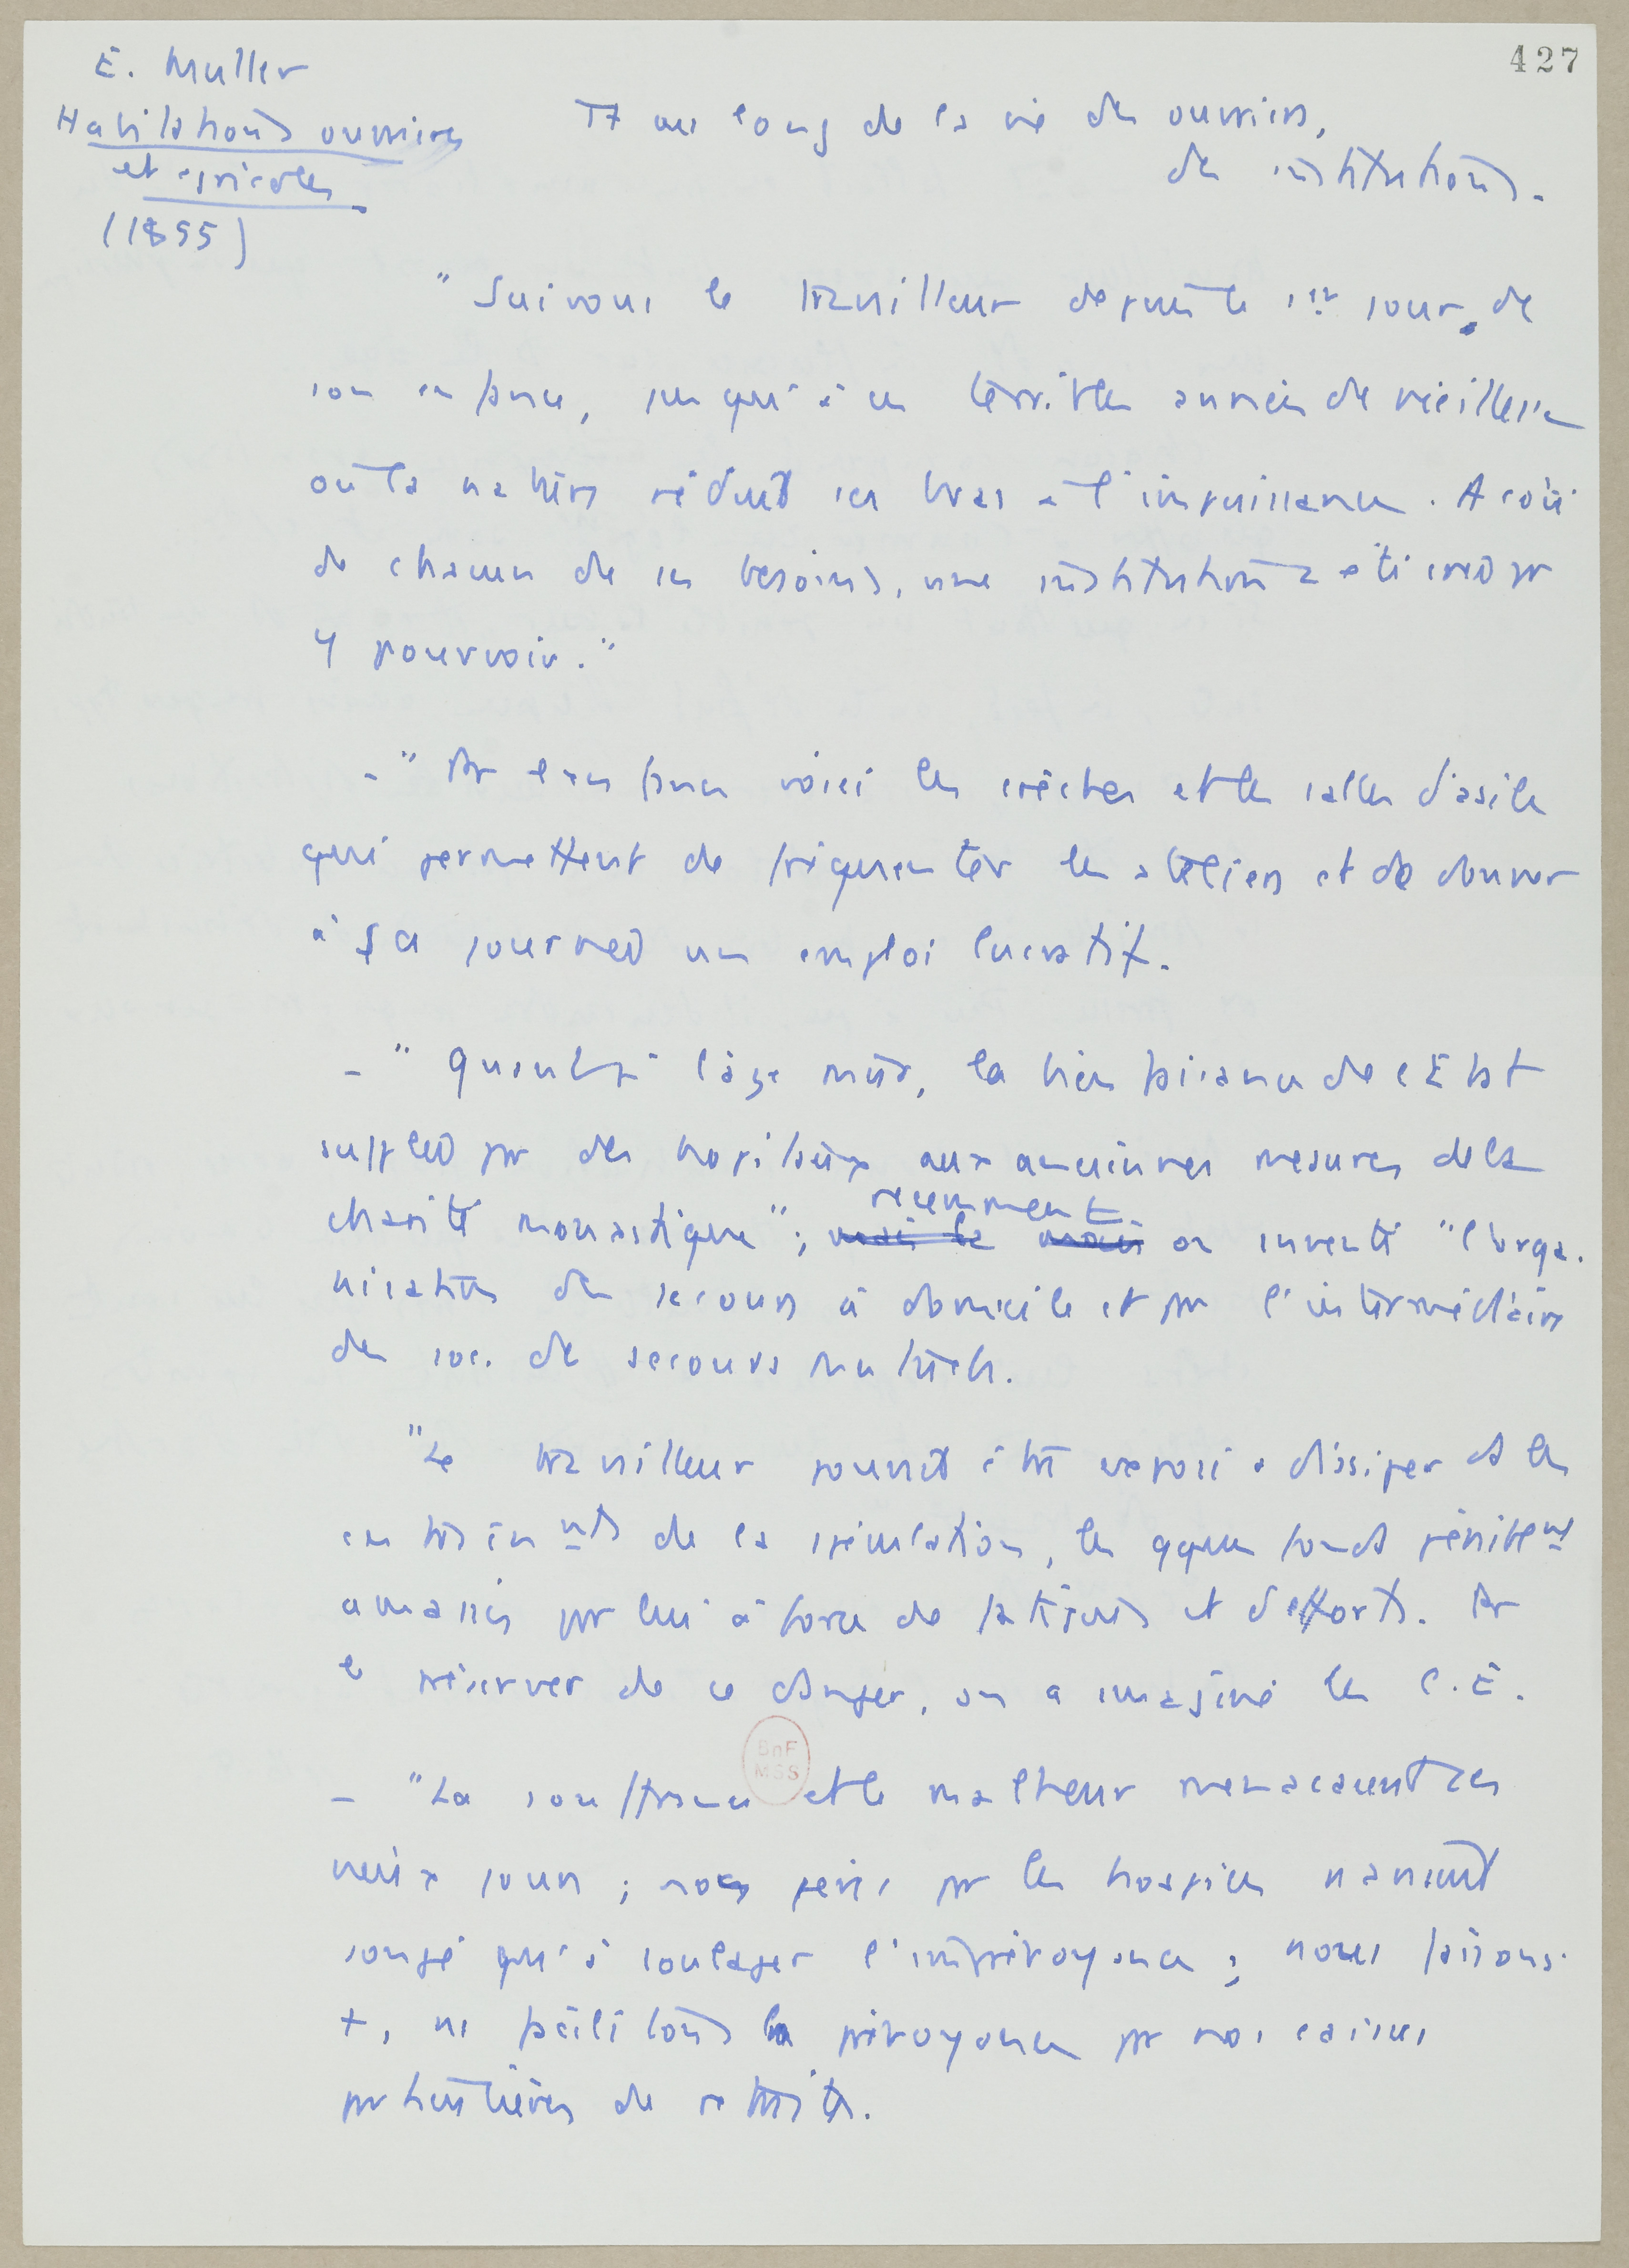 427
E. Muller
Habitations ouvrières
et agricoles
(1855)
Tt au long de la vie des ouvriers,
des institutions.
"Suivons le travailleur depuis le 1er jour de
son enfance, jusqu'à ces terribles années de vieillesse
où la nature réduit ses bras à l'impuissance. A côté
de chacun de ses besoins, une institution a été créée pr
y pourvoir."
- "Pr l'enfance voici les crèches et les salles d'asile
qui permettent de fréquenter les ateliers et de donner
à sa journée un emploi lucratif.
- "Quant à l'âge mûr, la bienfaisance de l'Etat
supplée par des hôpitaux aux anciennes mesures de la
charité monastique"; mais la
récemment
on inventé "l'orga-
nisation des secours à domicile et par l'intermédiaire
des soc. de secours mutuels.
"Le travailleur pouvait être exposé à dissiper ds les
entrainnts de la spéculation, les qques fonds péniblemt
amassés par lui à force de fatigues et d'efforts. Pr
le préserver de ce danger, on a imaginé les C.E.
BnF
MSS
- "La souffrance et le malheur menaçaient ses
vieux jours; nos pères par les hospices n'avaient
songé qu'à soulager l'imprévoyance; nous faisons
+, ns facilitons la prévoyance par nos caisses
particulières de retraites.